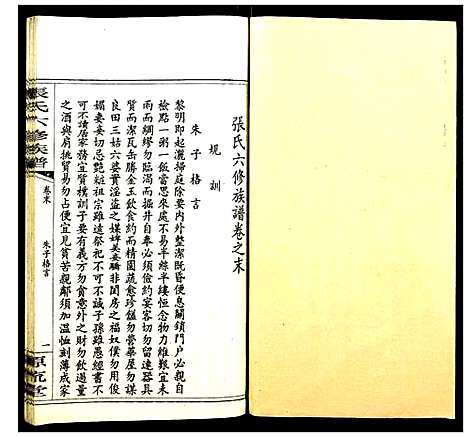 張氏六修族譜卷之末
規訓
朱子格言
黎明即起灑掃庭除要内外整潔既昏便息關鎖門戶必親自
檢點一粥一飯當思來處不易半絲半縷恒念物力維艱宜未
雨而綢繆勿臨渴而掘井自奉必須儉約宴客切勿留連器具
質而潔瓦缶勝金玉飲食約而精園蔬愈珍饈勿營華屋勿謀
良田三姑六婆實淫盜之媒婢美妾嬌非閨房之福奴僕勿用俊
美妻妾切忌艷粧祖宗雖遠祭祀不可不誠子孫雖愚經書不
可不讀居家務宜質樸訓子要有義方勿貪意外之財勿飲過量
之酒與肩挑貿易勿占便宜見貧苦親鄰須加溫恤刻薄成家
張氏六修族譜
卷末
朱子格言
一